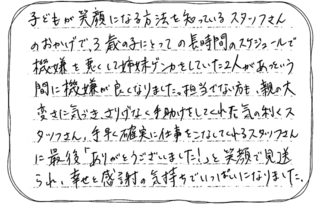 子どもが笑顔になる方法を知っているスタッフさん
のおかげで、3歳の子にとっての長時間のスケジュールで
機嫌を悪くして姉妹ゲンカをしていた2人があっという
間に機嫌が良くなりました。担当でない方も、親の大
変さに気づき、さりげなく手助けをしてくれた気の利くス
タッフさん、手早く確実に仕事をこなしてくれるスタッフさん
に最後「ありがとうございました!」と笑顔で見送
られ、幸せと感謝の気持ちでいっぱいになりました。